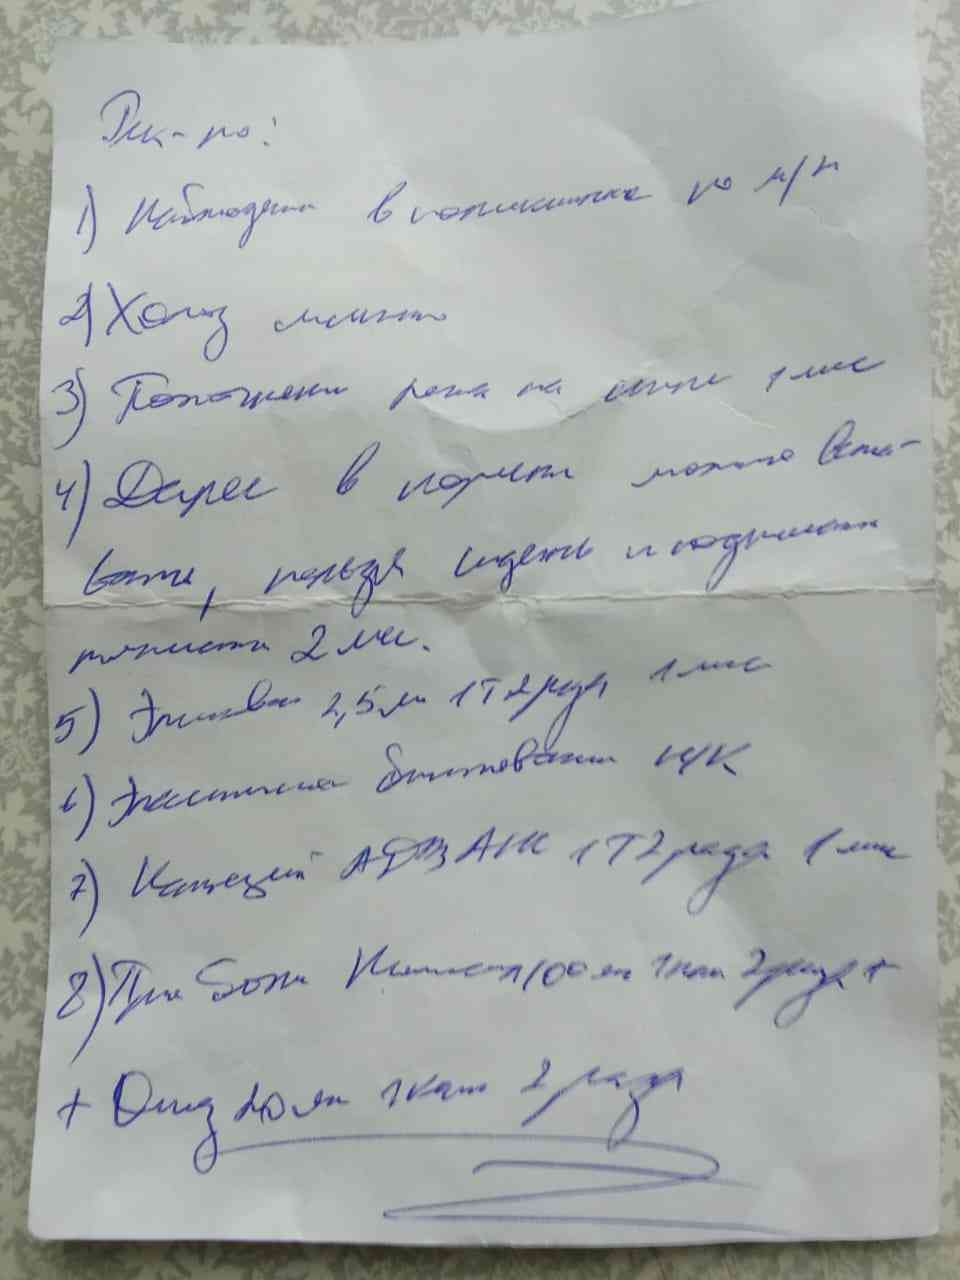 Рек-но:
1) Наблюдение в поликлинике по м/ж
2) Холод местно
3) Положение лежа на спине 1 мес
4) Далее в корсете можно вста-
вать, нельзя сидеть и поднимать
тяжести 2 мес.
5) Эликвис 2,5 мг 1Т 2 раза 1 мес
6) Эластичное бинтование Н/К
7) Кальций АДВАНС 1Т 2 раза 1 мес
8) При боли 100 мг 1 кап 2 раза +
+ Омез 20 мг 1 кап 2 раза